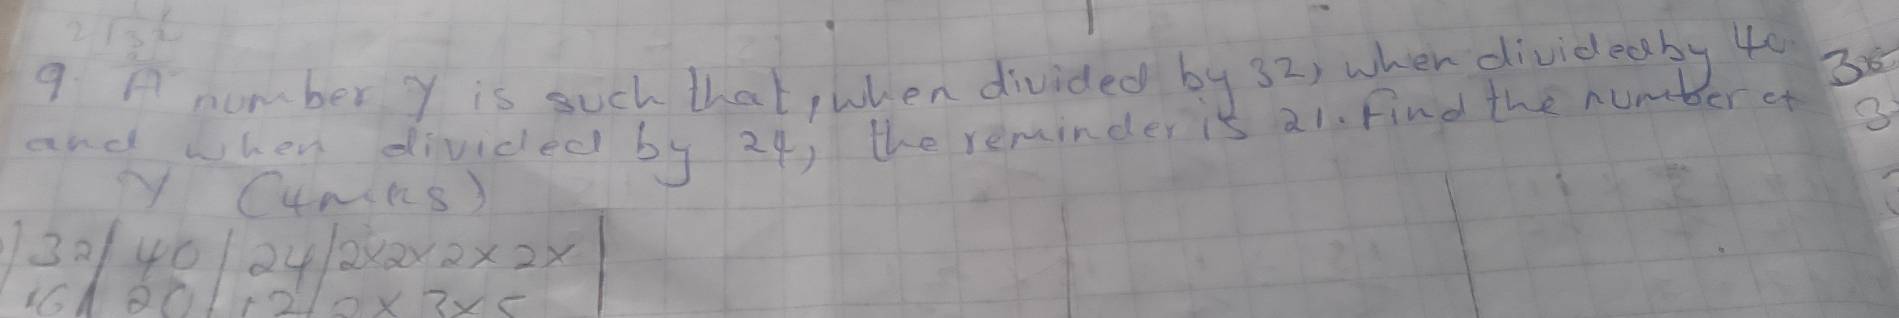 9. A number y is such that, when divided by 32, when divided by 40
and when divided by 24, the reminder is 21. Find the number of
y (4mks)
32 | 40 | 24 | 2x2x2x2x
16 | 20 | 12 | 2x3x5